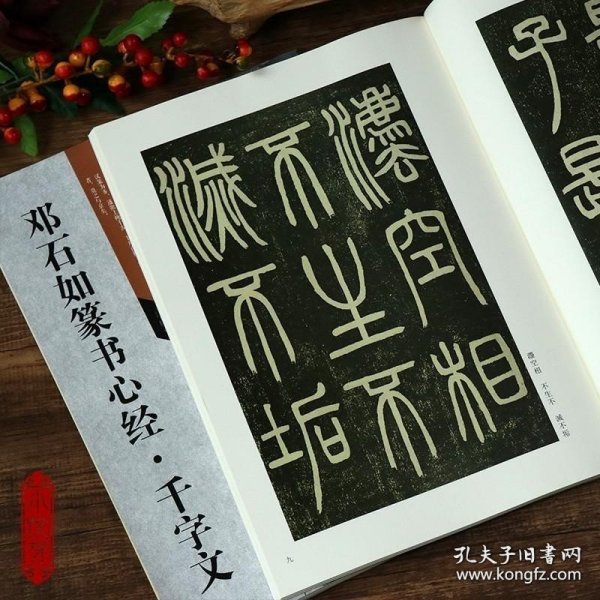 灋空相
不生不
滅不垢
灋空相 不生不 滅不垢
九
子
是
邓石如篆书心经·千字文
孔夫子旧书网
www.kongfz.com